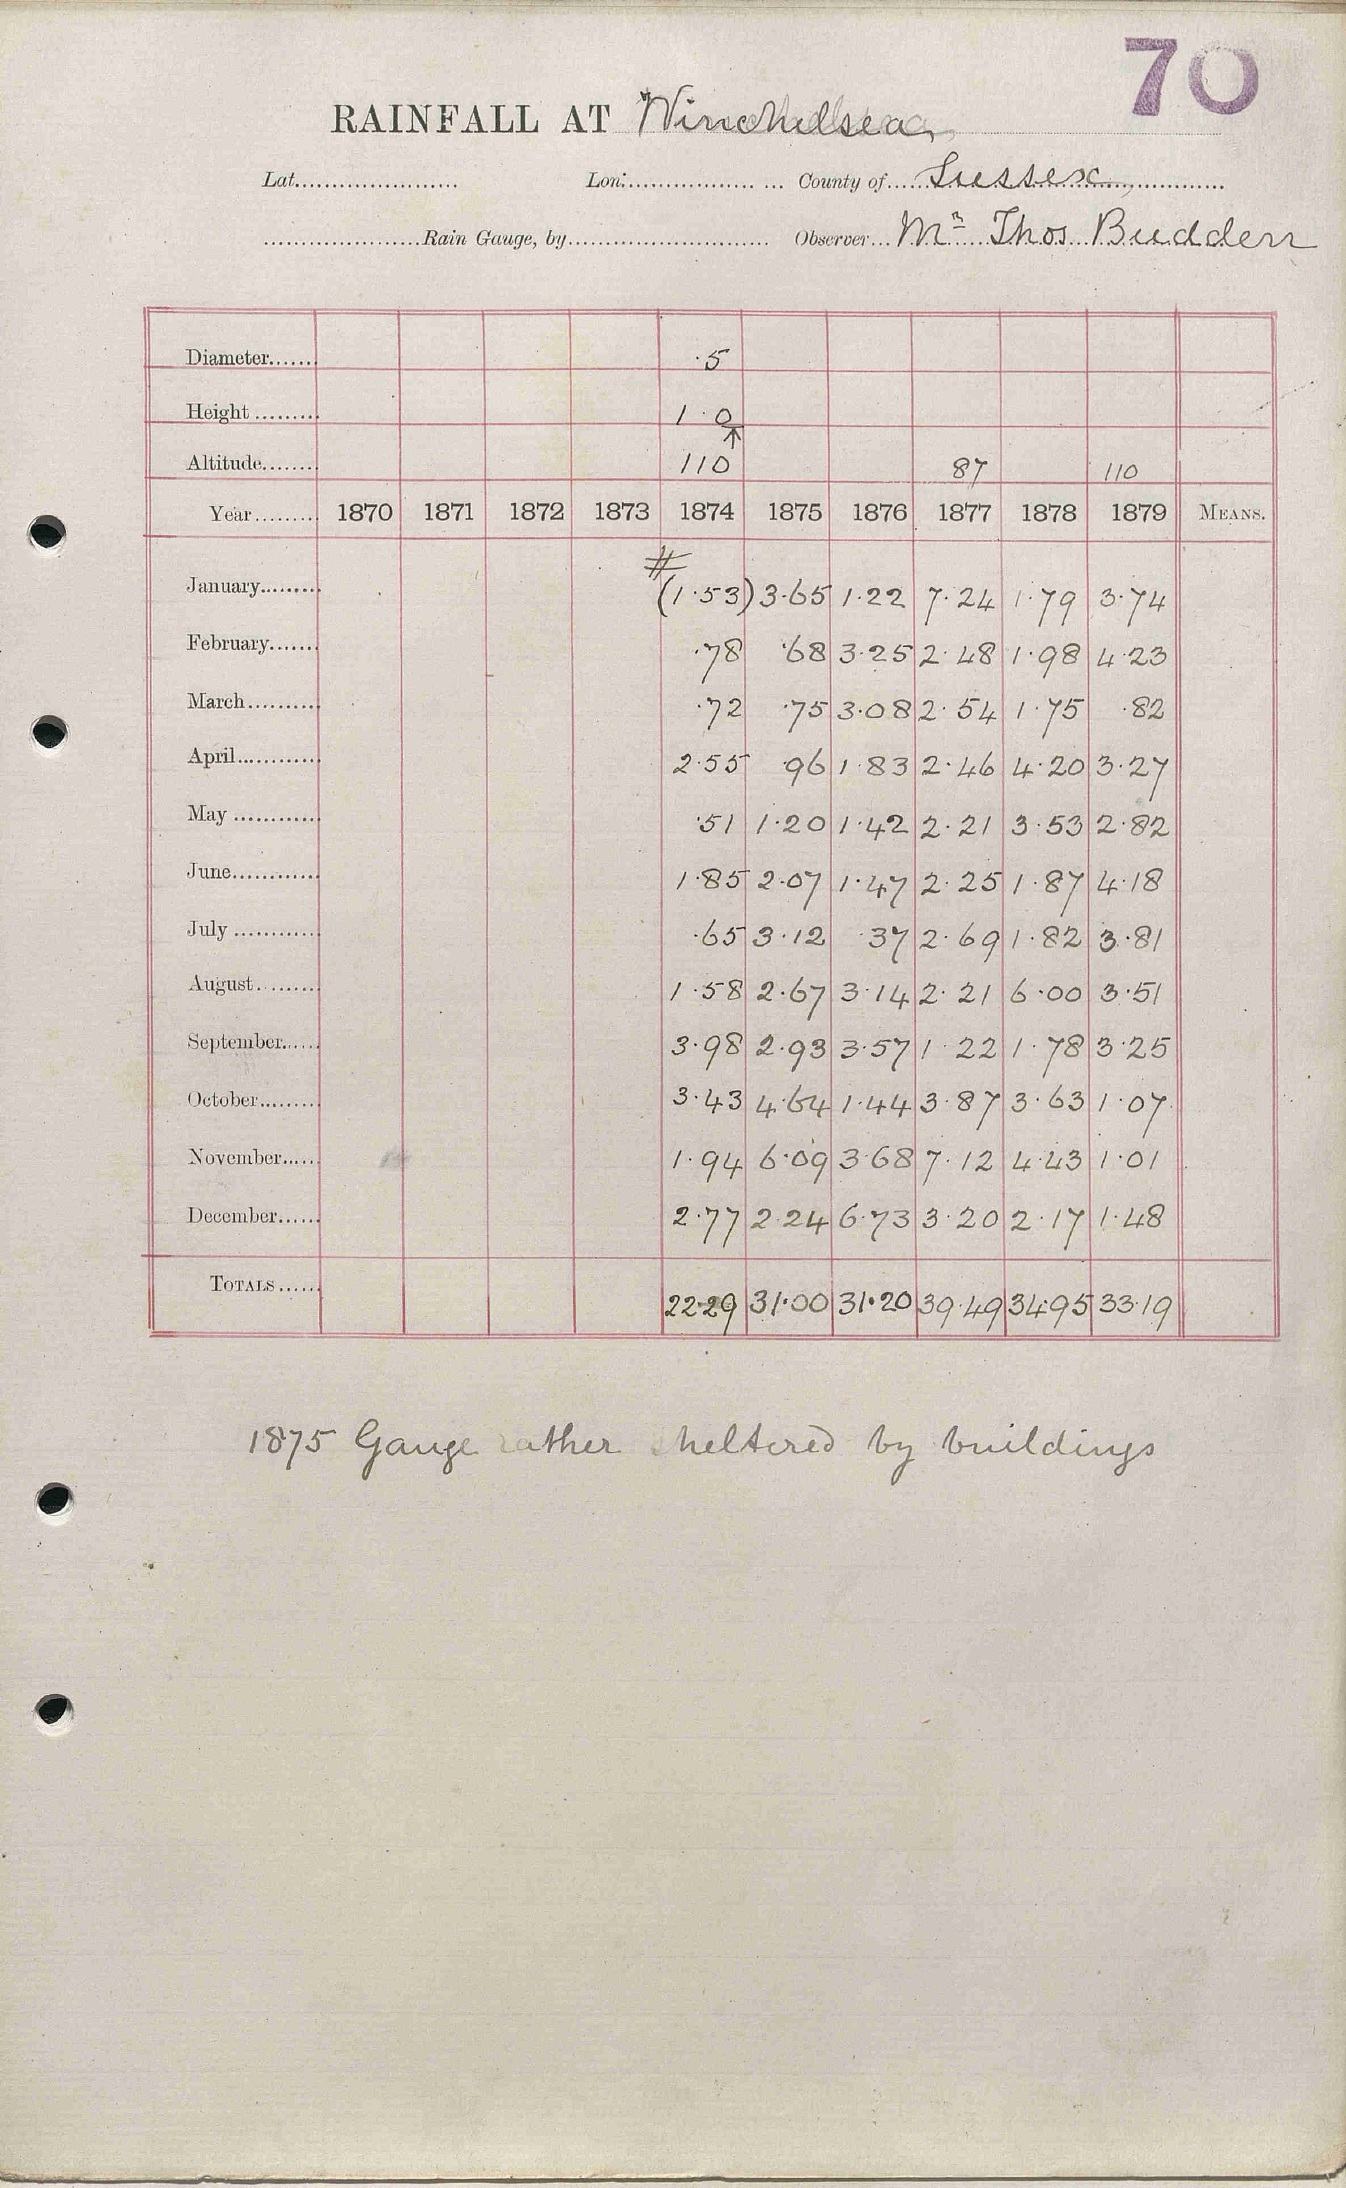 70
RAINFALL AT Winchelsea,
Lat. Lon. County of Sussex,
Rain Gauge, by Observer Mr Thos Budden
Diameter ·5
Height 1·0
Altitude 110 87 110
Year 1870 1871 1872 1873 1874 1875 1876 1877 1878 1879 MEANS.
#
January (1·53) 3·65 1·22 7·24 1·79 3·74
February ·78 ·68 3·25 2·48 1·98 4·23
March ·72 ·75 3·08 2·54 1·75 ·82
April 2·55 ·96 1·83 2·46 4·20 3·27
May ·51 1·20 1·42 2·21 3·53 2·82
June 1·85 2·07 1·47 2·25 1·87 4·18
July ·65 3·12 ·37 2·69 1·82 3·81
August 1·58 2·67 3·14 2·21 6·00 3·51
September 3·98 2·93 3·57 1·22 1·78 3·25
October 3·43 4·64 1·44 3·87 3·63 1·07
November 1·94 6·09 3·68 7·12 4·43 1·01
December 2·77 2·24 6·73 3·20 2·17 1·48
TOTALS 22·29 31·00 31·20 39·49 34·95 33·19
1875 Gauge rather sheltered by buildings